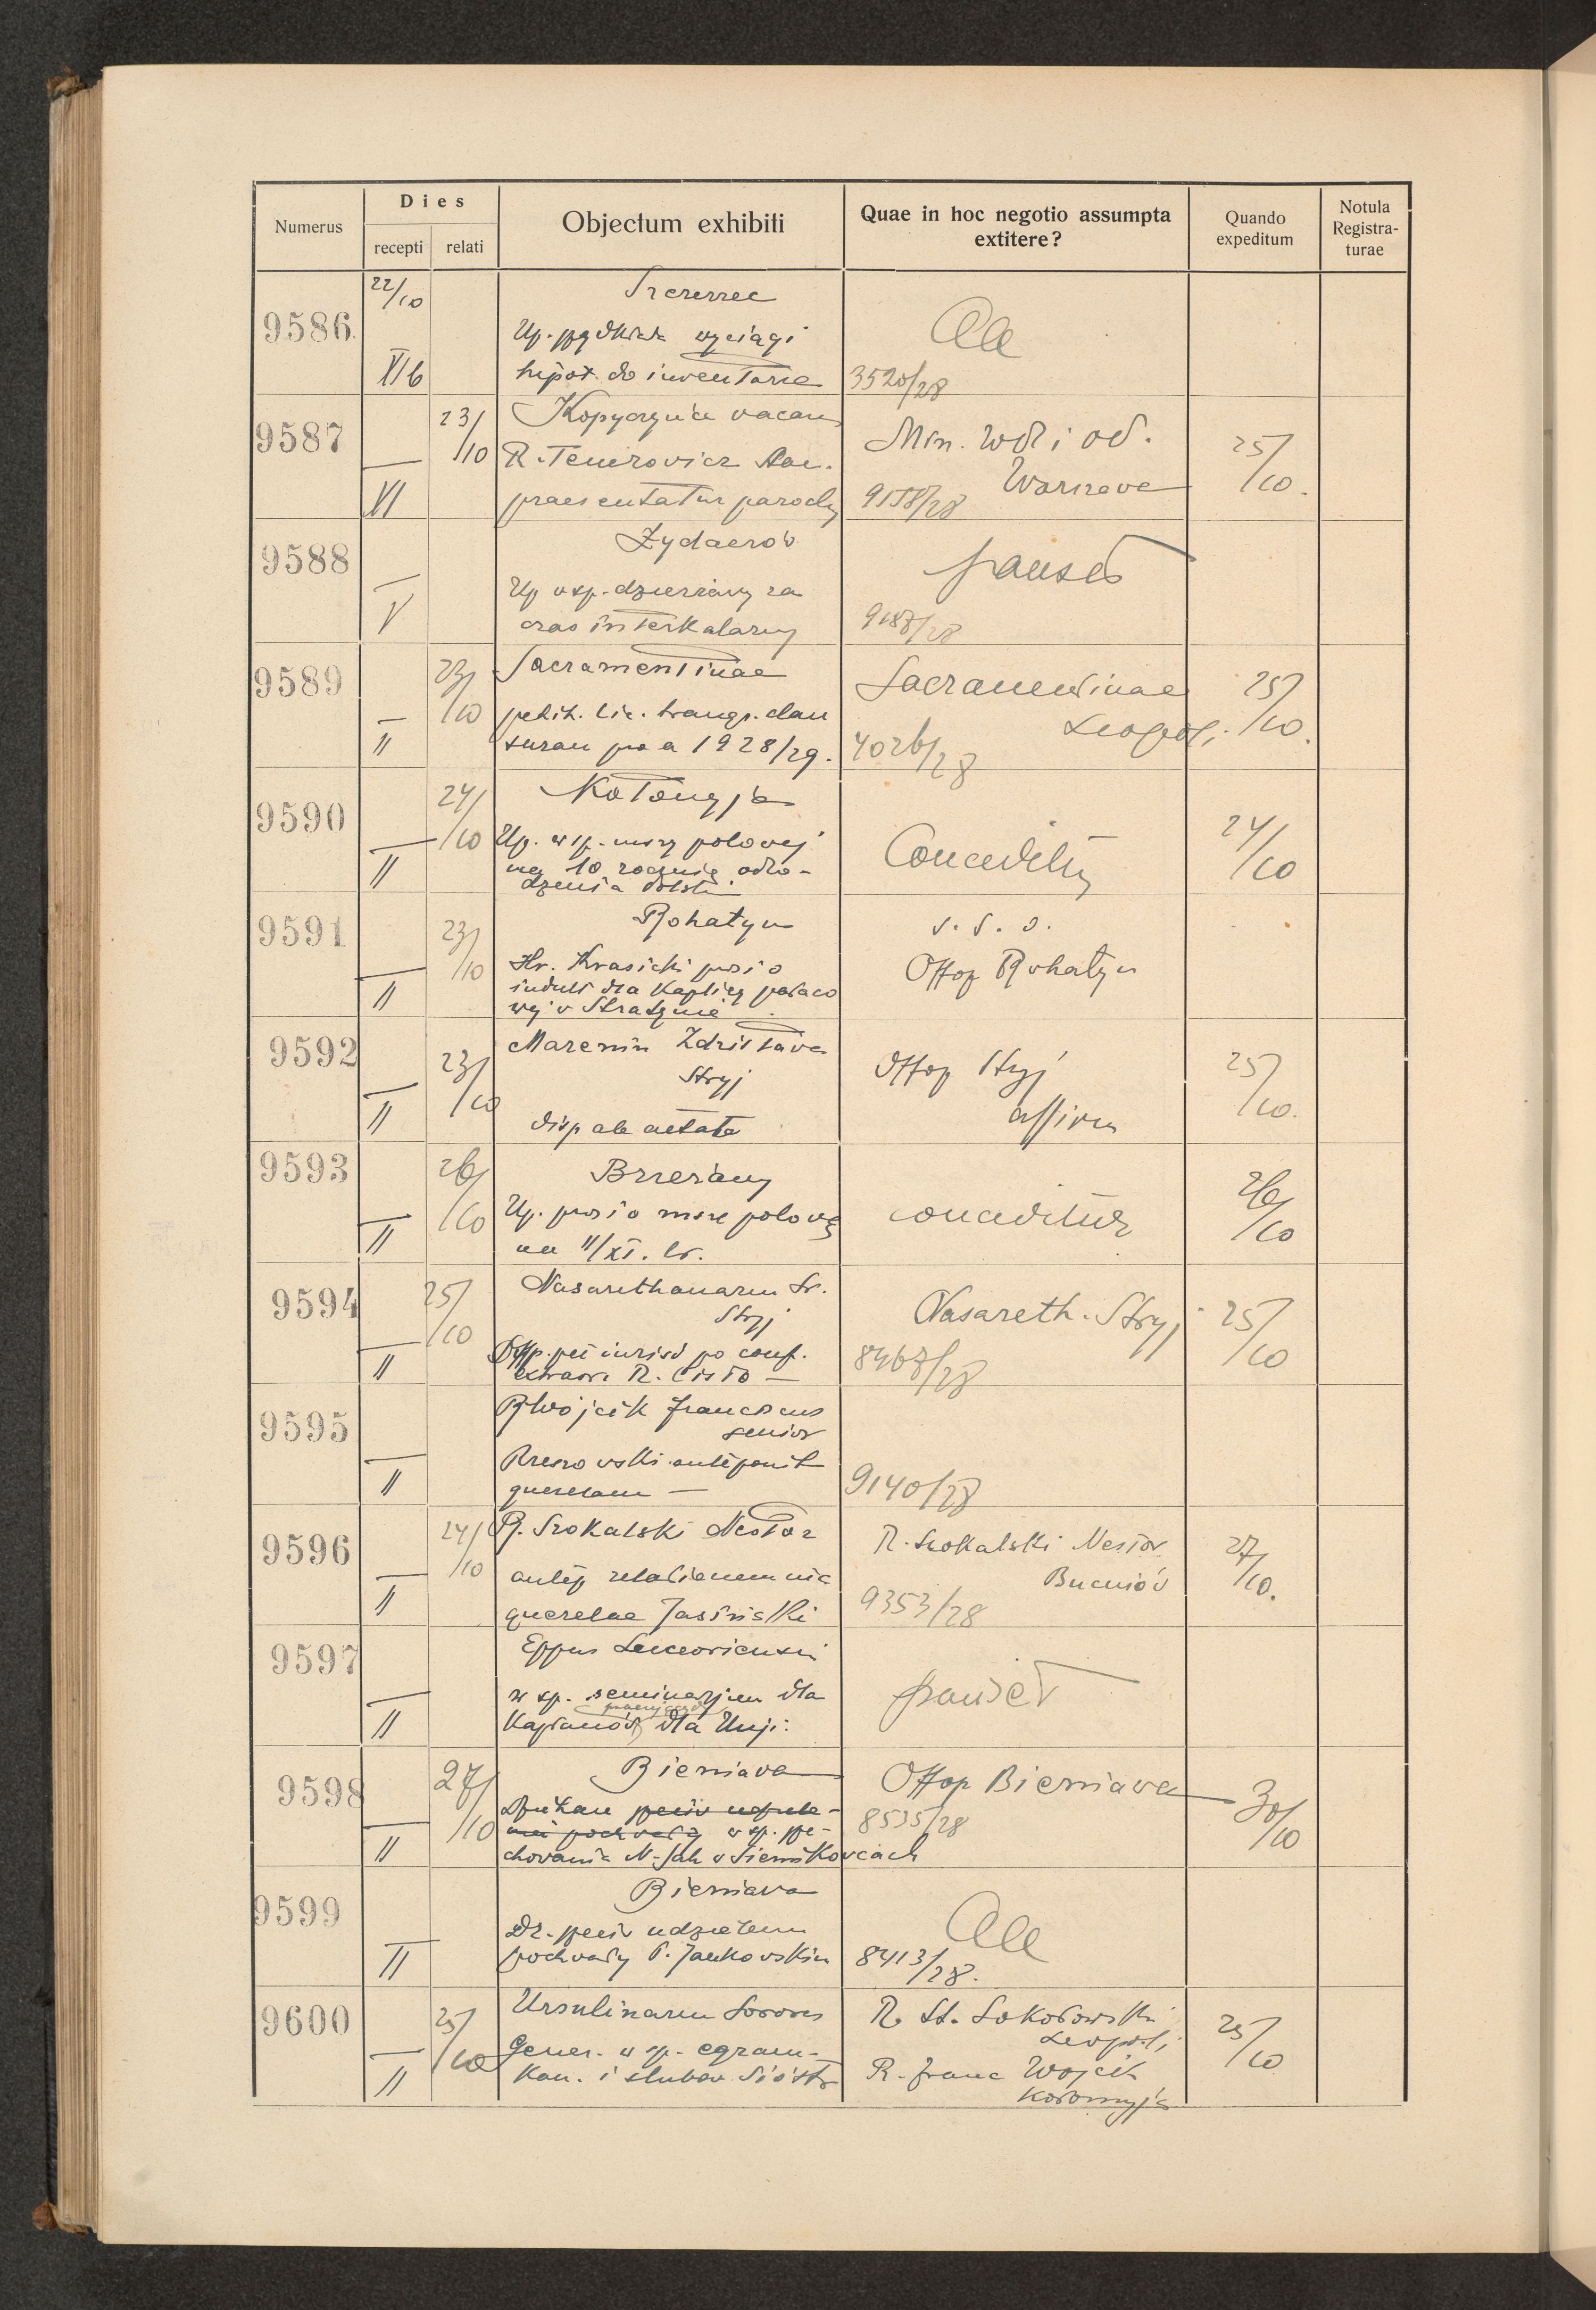 Numerus
Dies
recepti
relati
Objectum exhibiti
Quae in hoc negotio assumpta
extitere?
Quando
expeditum
Notula
Registra-
turae
9586
22/10
VIb
Szczerzec
Up. wyciągi
hipot. do inwentarza
3520/28
9587
23/10
VI
Kopyczyńce vacans
R.
praesentatur parochus
Min. WR i OP.
Warszawa
9158/28
25/10.
9588
V
Żydaczów
Up w sp. dzierżawy za
czas interkalarny
pauset
9187/28
9589
23/10
II
Sacramentinae
petit. lic. transgr. clau
suram pro a 1928/29.
Sacramentinae
Leopoli
4026/28
25/10.
9590
24/10
II
Kołomyja
Up. w sp. mszy polowej
na 10 rocznicę odro-
dzenia Polski
Conceditur
24/10
9591
23/10
II
Rohatyn
Hr. Krasicki prosi o
indult dla Kaplicy pałaco
wej w Stratynie
v. s. o.
Offop Rohatyn
9592
23/10
II
Zdzisława
Stryj
disp ab aetate
Offop Stryj
25/10.
9593
26/10
II
Brzeżany
Up. prosi o mszę polową
na 11/XI. br.
conceditur
26/10
9594
25/10
II
Nasarethanarum Sr.
Stryj
pro conf.
extraor. R. Cisło —
Nasareth. Stryj
8467/28
25/10
9595
II
R Wójcik Franciscus
senior
antéponit
querelam —
9140/28
9596
24/10
II
R. Szokalski Nestor
antép relationem
querelae Jasiński
R. Szokalski Nestor
Bucniów
9353/28
27/10.
9597
II
Eppus Luceoriensis
w sp. seminarjum dla
Kapłanów dla Unji.
pauset
9598
27/10
II
Bieniawa
Dziekan
w sp. prze-
chowania N. Sakr w Siemikowcach
Offop Bieniawa
8535/28
30/10
9599
II
Bieniawa
Dz. prosi udzielenie
pochwały P. Jankowskim
8413/28.
9600
25/10
II
Ursulinarum Sorores
gener. w sp. egzam.
kan. i ślubów Sióstr
R. St. Sokołowski
Leopoli
R. Franc Wójcik
Kołomyja
25/10